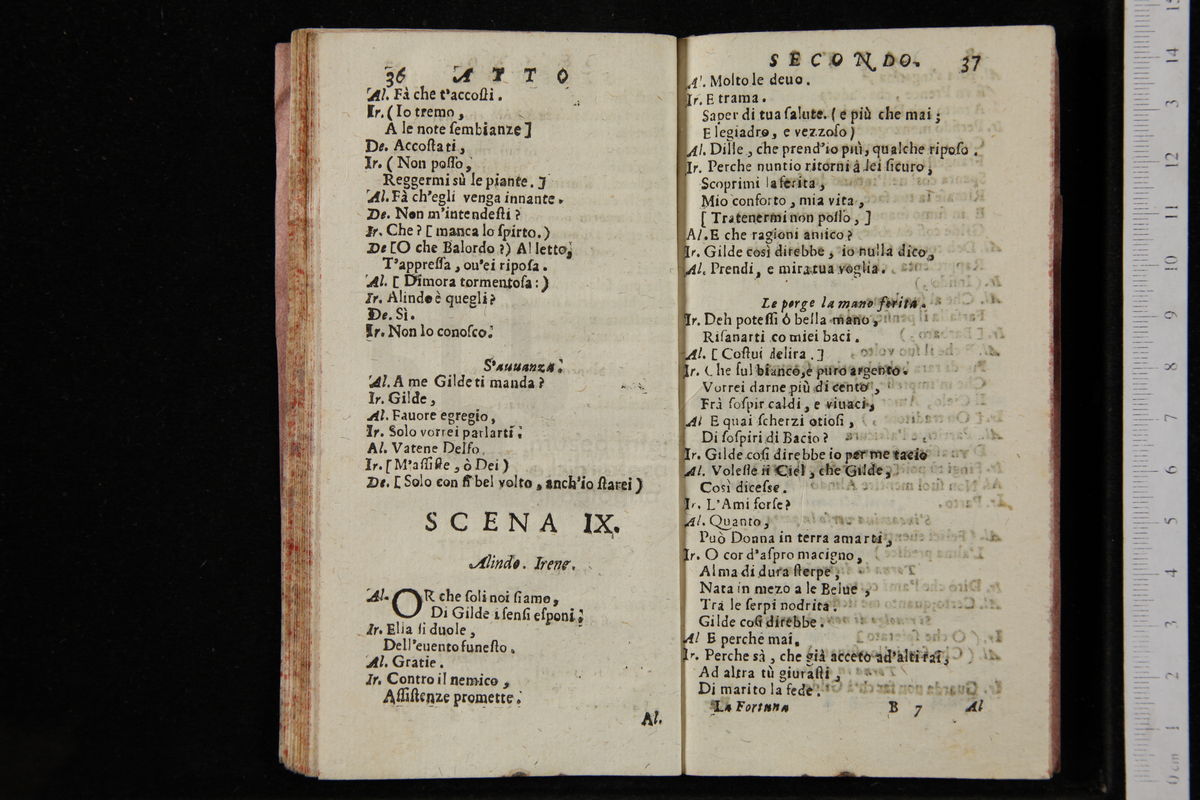 36 ATTO
Al. Fà che t'accosti.
Ir. (Io tremo,
A le note sembianze]
De. Accostati,
Ir. (Non posso,
Reggermi sù le piante. ]
Al. Fà ch'egli venga innante.
De. Non m'intendesti?
Ir. Che? [ manca lo spirto.)
De [O che Balordo?) Al letto;
T'appressa, ou'ei riposa.
Al. [ Dimora tormentosa:)
Ir. Alindo è quegli?
De. Sì.
Ir. Non lo conosco.
S'auuanza.
Al. A me Gilde ti manda?
Ir. Gilde,
Al. Fauore egregio,
Ir. Solo vorrei parlarti:
Al. Vatene Delfo.
Ir. [M'assiste, ò Dei)
De. [Solo con sì bel volto, anch'io starei)
SCENA IX.
Alindo. Irene.
Al. OR che soli noi siamo,
Di Gilde i sensi esponi;
Ir. Elia si duole,
Dell'euento funesto.
Al. Gratie.
Ir. Contro il nemico,
Assistenze promette.
Al.
SECONDO. 37
Al. Molto le deuo.
Ir. E trama.
Saper di tua salute. (e più che mai;
E legiadro, e vezzoso)
Al. Dille, che prend'io più, qualche riposo.
Ir. Perche nuntio ritorni â lei sicuro,
Scoprimi la ferita,
Mio conforto, mia vita,
[ Tratenermi non posso, ]
Al. E che ragioni amico?
Ir. Gilde così direbbe, io nulla dico,
Al. Prendi, e mira tua voglia.
Le porge la mano ferita.
Ir. Deh potessi ò bella mano,
Risanarti co miei baci.
Al. [ Costui delira. ]
Ir. Che sul bianco, e puro argento.
Vorrei darne più di cento,
Frà sospir caldi, e viuaci,
Al E quai scherzi otiosi,
Di sospiri di Bacio?
Ir. Gilde così direbbe io per me tacio
Al. Volesse il Ciel, che Gilde,
Così dicesse.
Ir. L'Ami forse?
Al. Quanto,
Può Donna in terra amarti,
Ir. O cor d'aspro macigno,
Alma di dura sterpe,
Nata in mezo a le Belue,
Trà le serpi nodrita.
Gilde così direbbe.
Al E perche mai.
Ir. Perche sà, che già acceto ad'alti rai,
Ad altra tù giurasti,
Di marito la fede.
La Fortuna B 7 Al